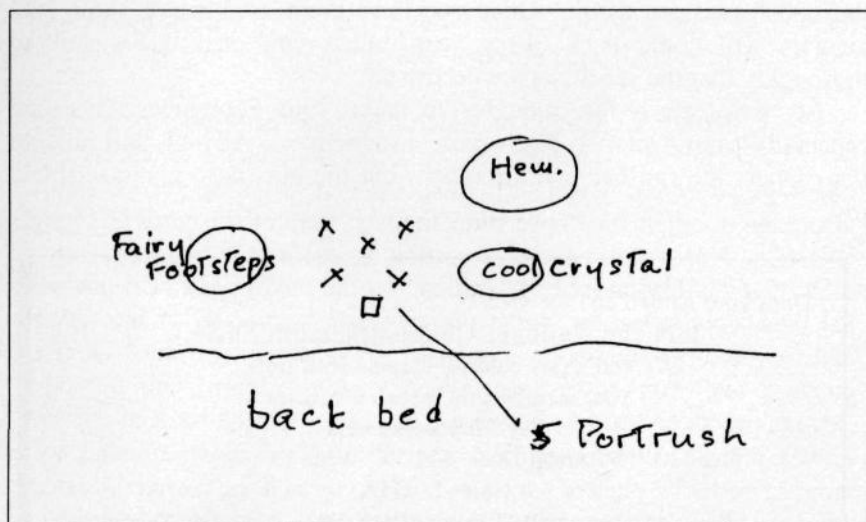 Hem.
Fairy
Footsteps
Cool Crystal
back bed
5 Portrush